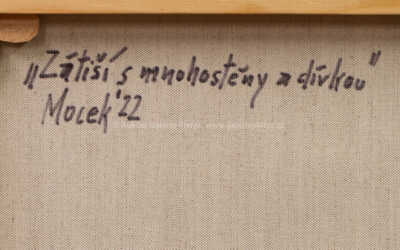 „Zátiší s mnohostěny a dívkou"
Mocek '22